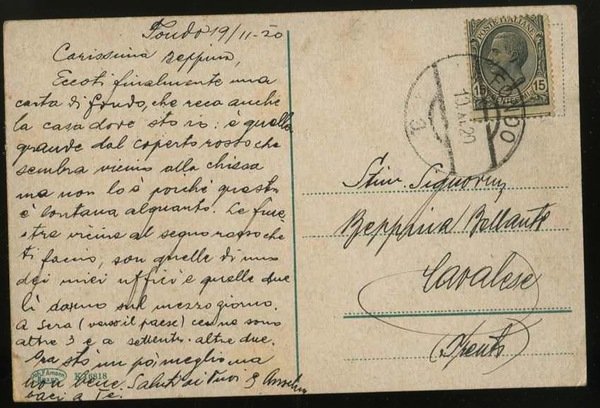 Fondo 19/11-20
Carissima Beppina,
Eccoti finalmente una
carta di Fondo, che reca anche
la casa dove sto io: è quella
grande dal coperto rosso che
sembra vicino alla chiesa
ma non lo è perchè questa
è lontana alquanto. Le fine
stre vicine al segno rosso che
ti faccio, son quelle di uno
dei miei uffici e quelle due
lì danno sul mezzogiorno.
A sera (verso il paese) ce ne sono
altre 3 e a settentr. altre due.
Ora sto un po' meglio ma
non bene. Saluti ai Tuoi
baci a Te.
K 18818
POSTE ITALIANE
15 15
FONDO
19.XI.20
Stim. Signorina
Beppina Bellante
Cavalese
Trento